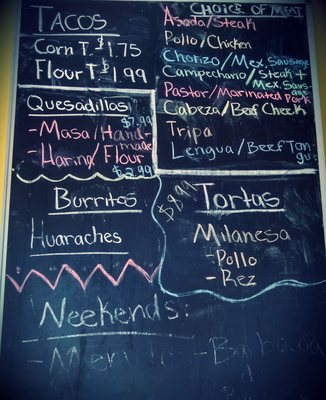 TACOS
Corn T. $1.75
Flour T. $1.99
Quesadillas
$7.99
- Masa/Hand-
made
- Harina/Flour
$2.99
Burritos
Huaraches
CHOICE OF MEAT
Asada/Steak
Pollo/Chicken
Chorizo/Mex. Sausage
Campechano/Steak +
Mex. Saus
age
Pastor/Marinated Pork
Cabeza/Beef Cheek
Tripa
Lengua/Beef Ton-
gue
$8.99
Tortas
Milanesa
- Pollo
- Rez
Weekends: